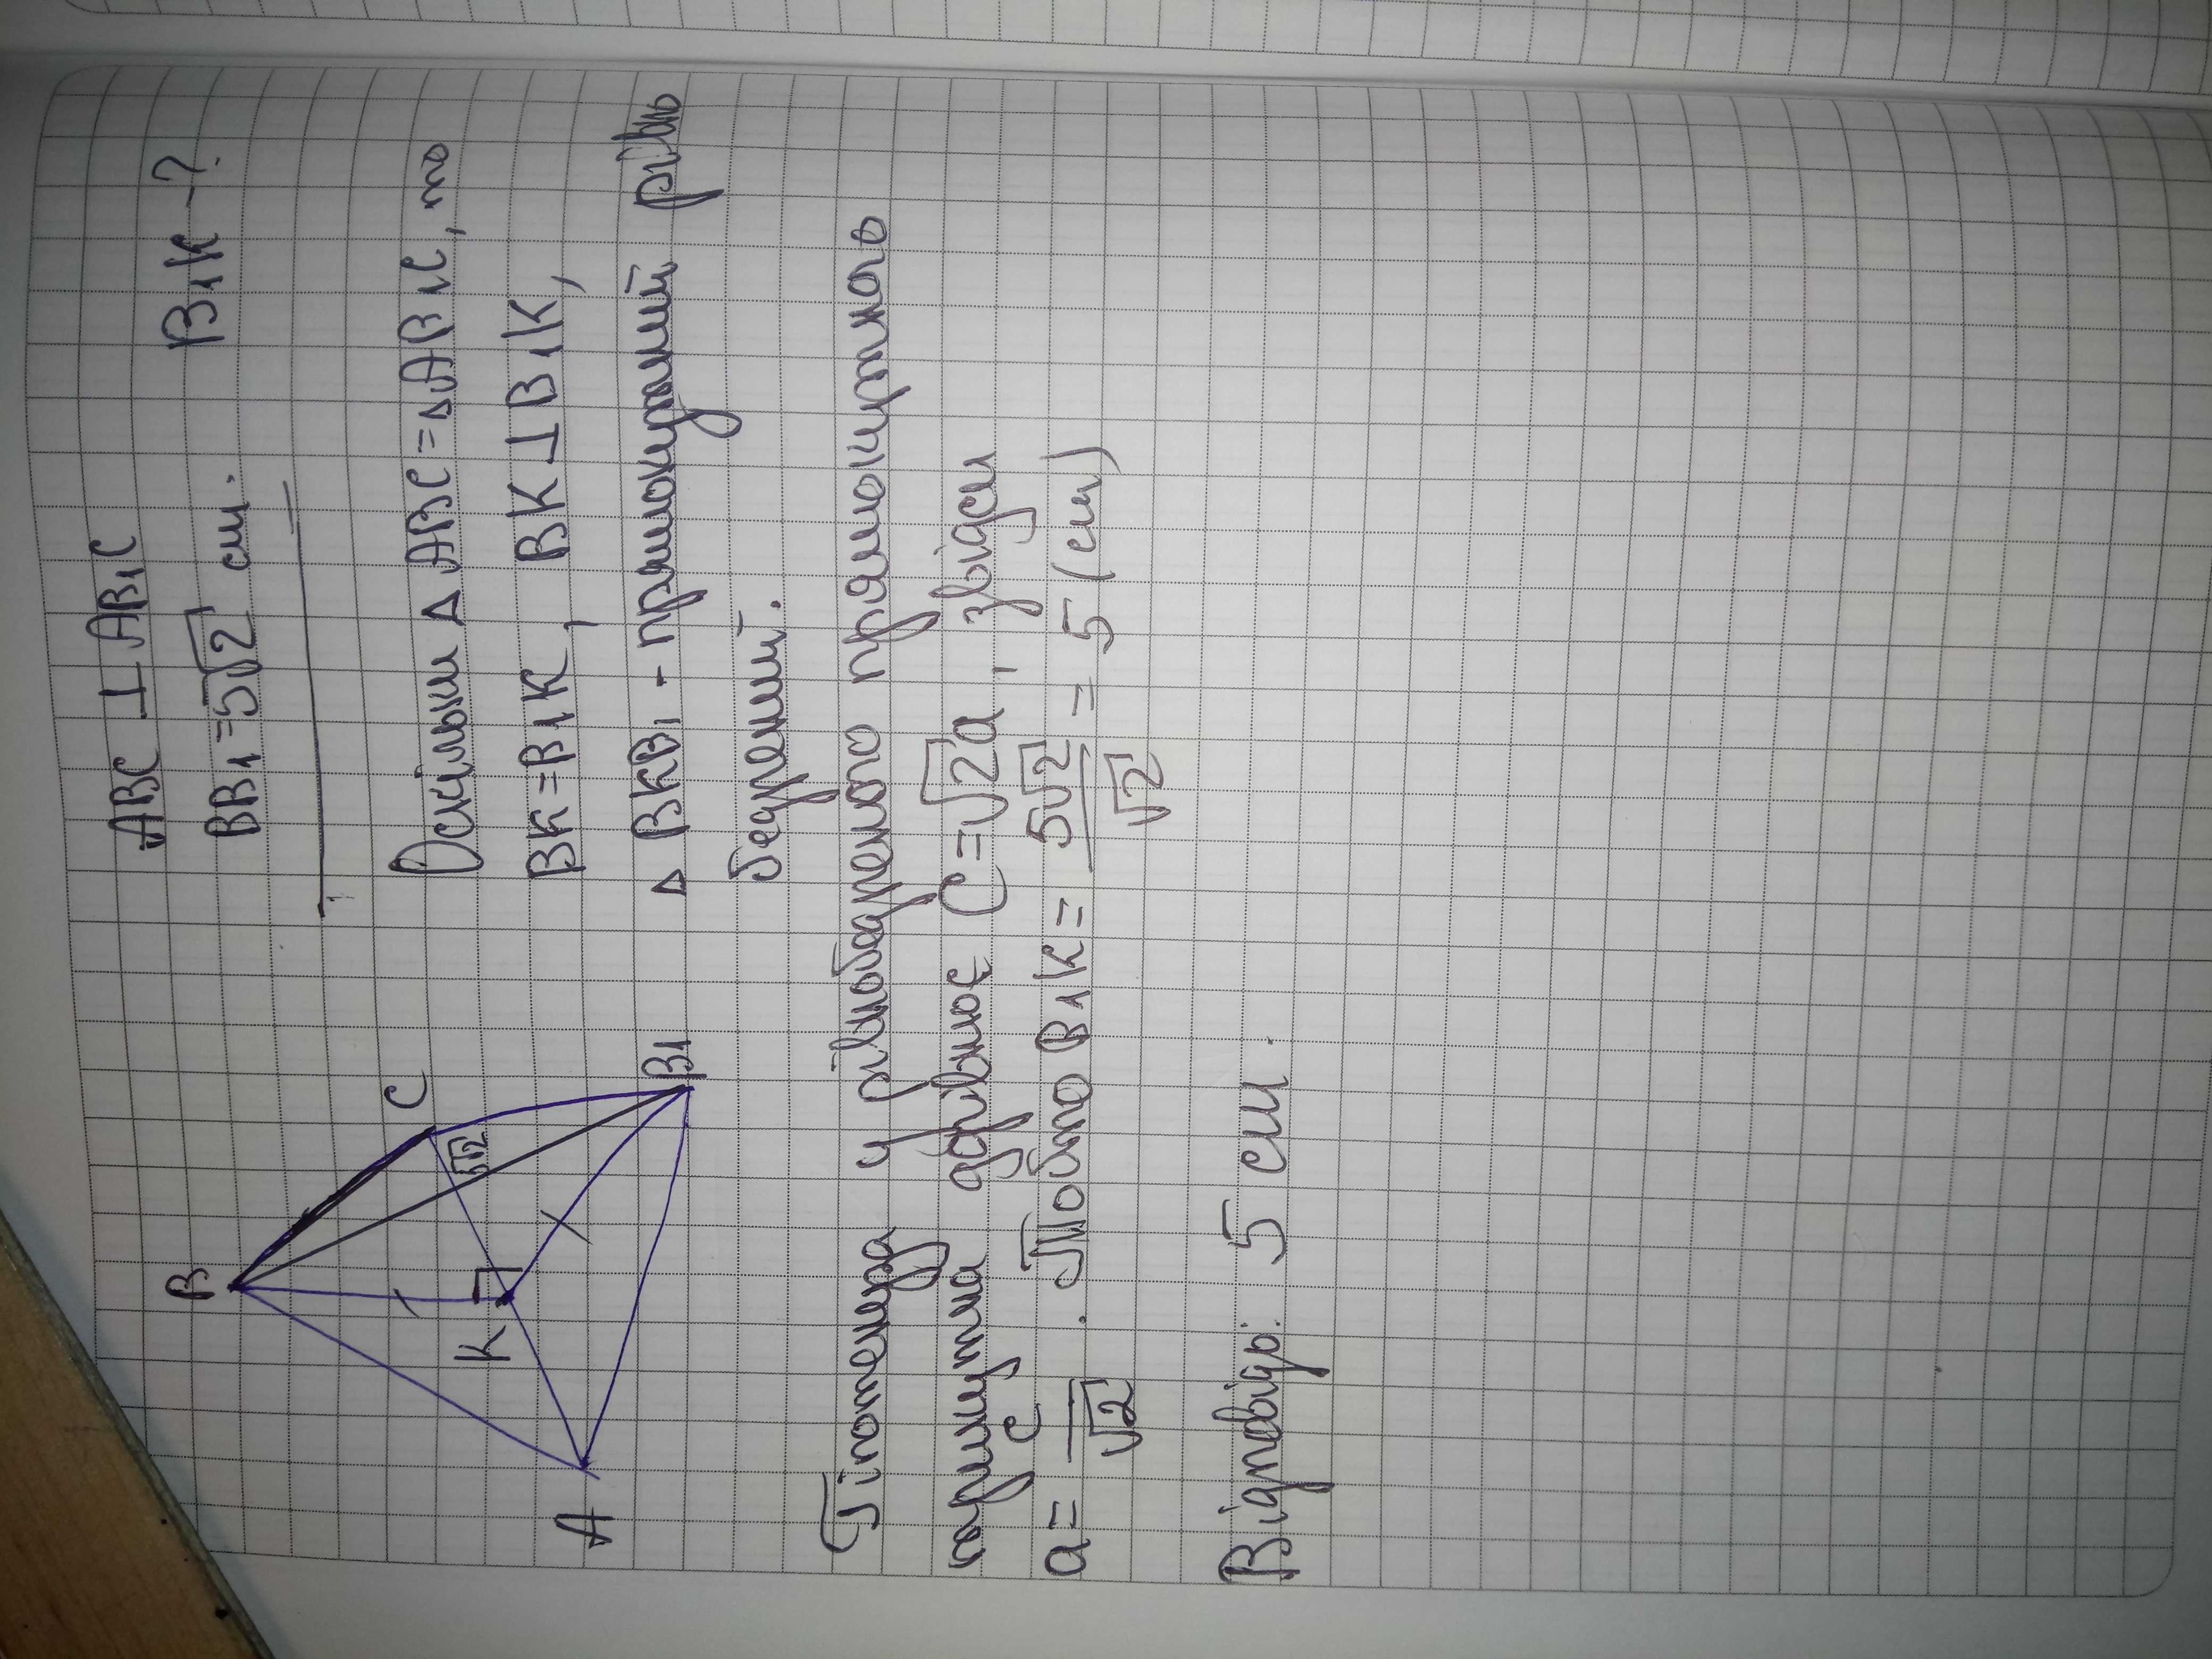 ABC ⊥ AB₁C
BB₁ = 5√2 см.
B₁K - ?
B
C
K
5√2
A
B₁
Оскільки △ ABC = △AB₁C, то
BK = B₁K, BK ⊥ B₁K,
△ BKB₁ - прямокутний рівно
бедрений.
Гіпотенуза у рівнобедреного прямокутного
трикутника дорівнює C = √2a, звідси
a = c/√2 . Тобто B₁K = 5√2/√2 = 5 (см)
Відповідь: 5 см.